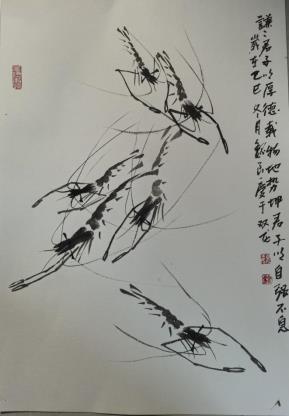 謙々君子以厚德載物地势坤君子以自强不息
歲在乙巳冬月